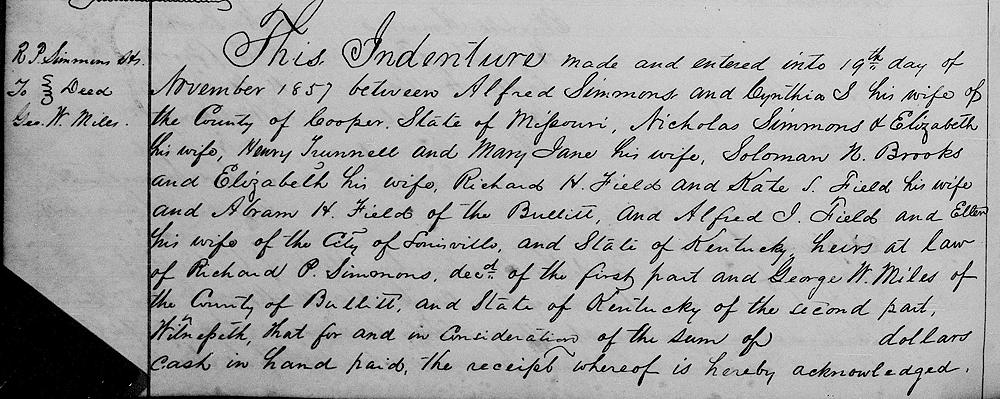 R. P. Simmons Hs.
To } Deed
Geo. W. Miles.
This Indenture made and entered into 19th day of
November 1857 between Alfred Simmons and Cynthia S his wife of
the County of Cooper. State of Missouri, Nicholas Simmons & Elizabeth
his wife, Henry Trunnell and Mary Jane his wife, Soloman N. Brooks
and Elizabeth his wife, Richard H. Field and Kate S. Field his wife
and Abram H. Field of the Bullitt, and Alfred J. Field and Ellen
his wife of the City of Louisville, and State of Kentucky heirs at law
of Richard P. Simmons, decd. of the first part and George W. Miles of
the County of Bullitt, and State of Kentucky of the second part,
Witnesseth, that for and in Consideration of the sum of dollars
Cash in hand paid, the receipt whereof is hereby acknowledged.